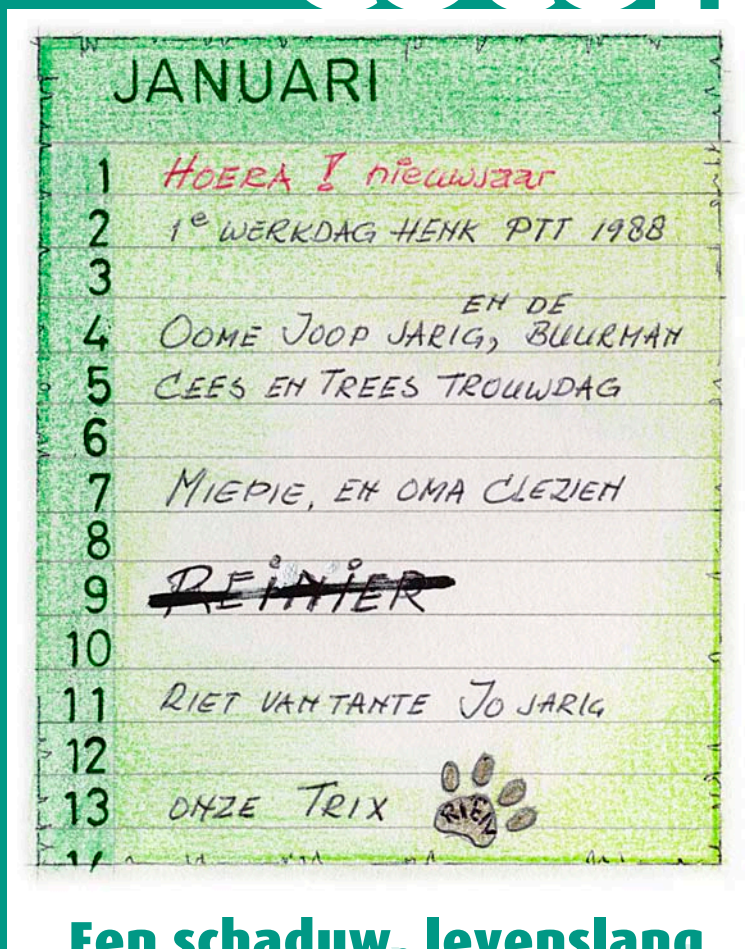 JANUARI
1 HOERA ! nieuwjaar
2 1e WERKDAG HENK PTT 1988
3
EN DE
4 OOME JOOP JARIG, BUURMAN
5 CEES EN TREES TROUWDAG
6
7 MIEPIE, EN OMA CLEZIEN
8
9 REINIER
10
11 RIET VAN TANTE JO JARIG
12
13 ONZE TRIX RIEN
Een schaduw, levenslang